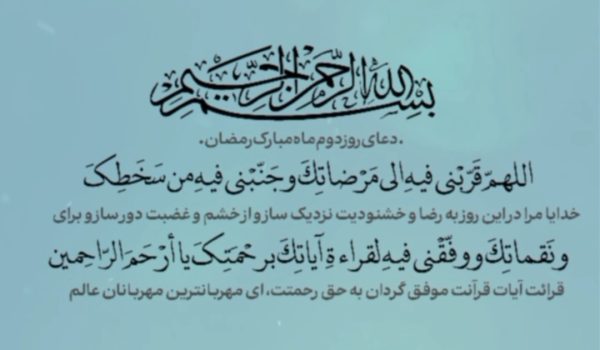 بسم الله الرحمن الرحیم
.دعای روز دوم ماه مبارک رمضان.
اللهمّ قَرّبْنی فیهِ الی مَرْضاتِكَ وجَنّبْنی فیهِ من سَخَطِكَ
خدایا مرا در این روز به رضا و خشنودیت نزدیک ساز و از خشم و غضبت دور ساز و برای
ونَقماتِكَ ووفّقْنی فیهِ لقراءةِ آیاتِكَ برحْمَتِکَ یا أرْحَمَ الرّاحِمین
قرائت آیات قرآنت موفق گردان به حق رحمتت، ای مهربانترین مهربانان عالم